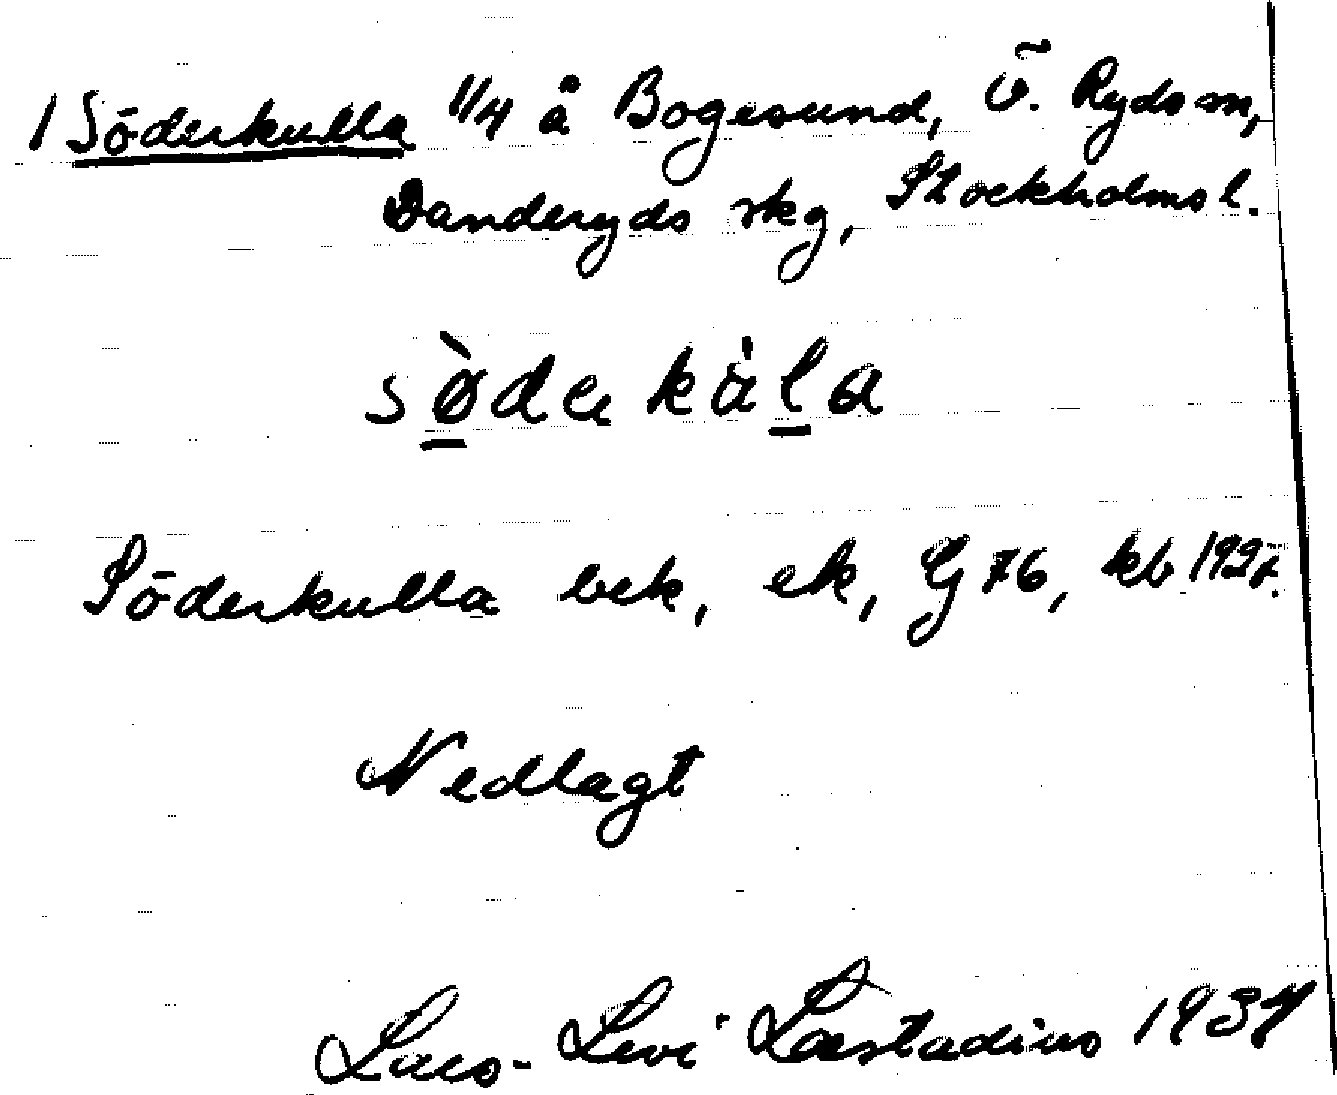 1 Söderkulla 1/4 å Bogesund, Ö. Ryds sn,
Danderyds skg, Stockholms l.
sø̀de kàla
Söderkulla bek, ek, Gj 76, kb 1927.
Nedlagt
Lars-Levi Læstadius 1937